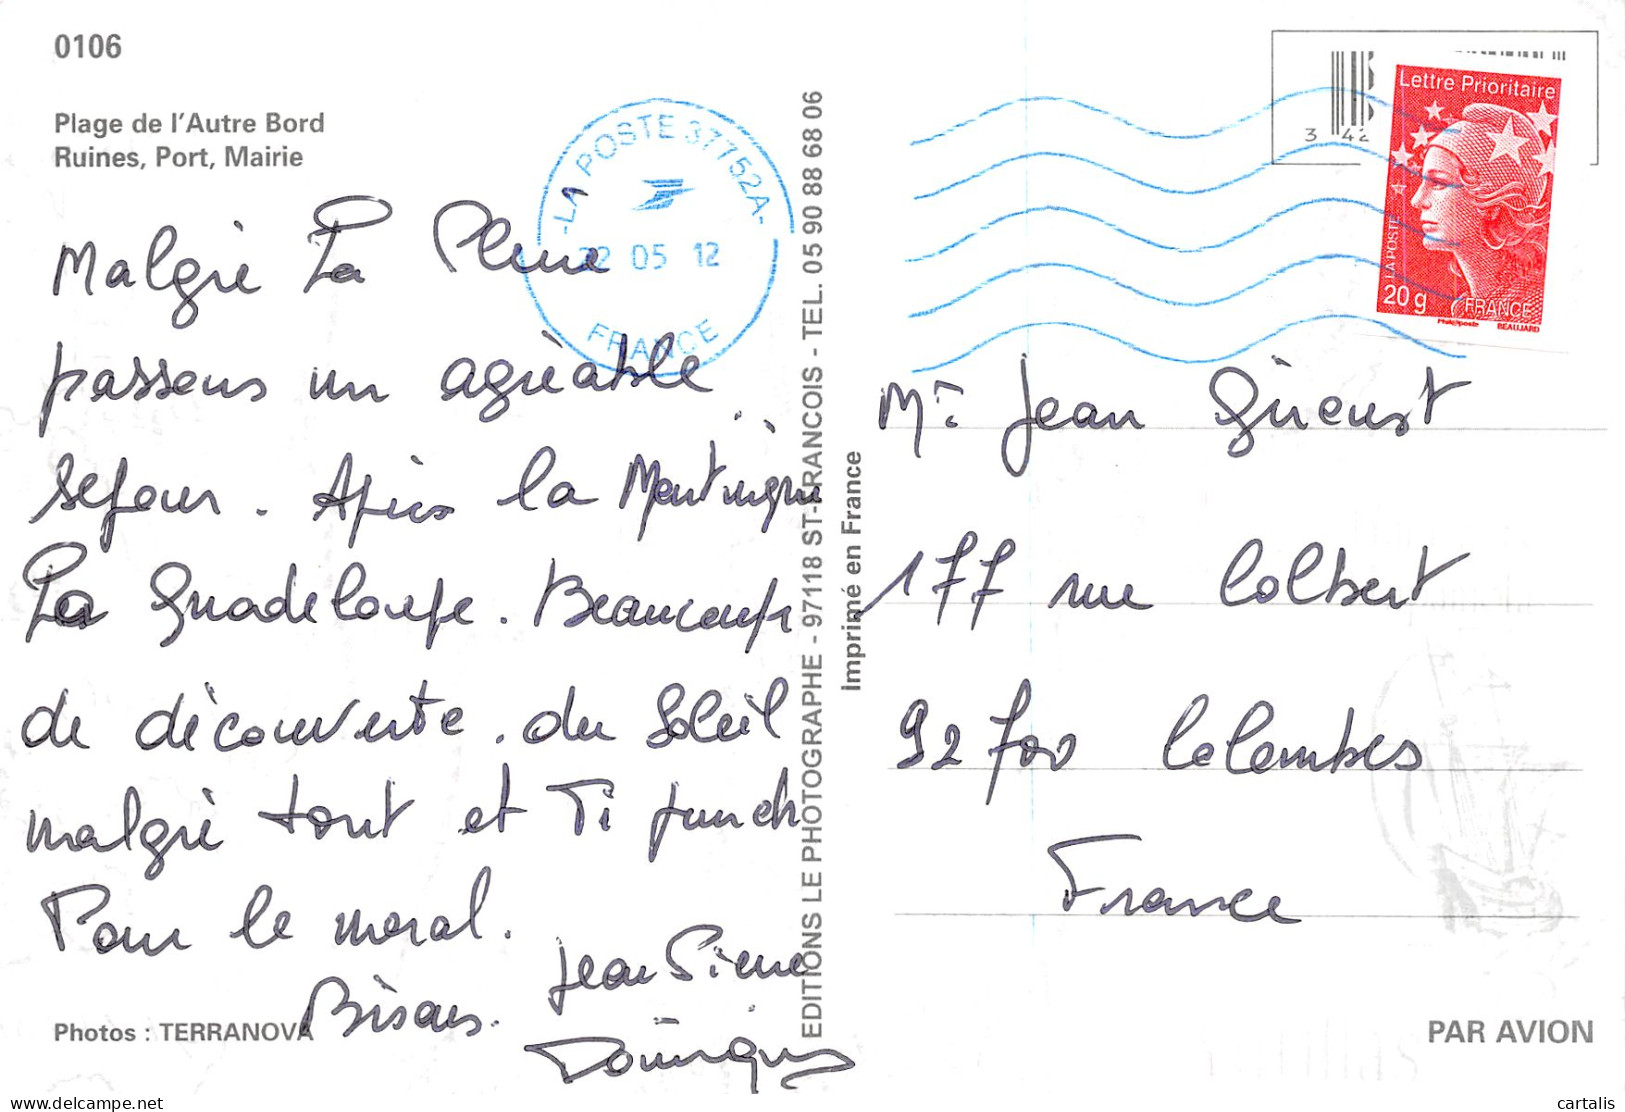 0106
Plage de l'Autre Bord
Ruines, Port, Mairie
Malgré La Pluie
passons un agréable
sejour. Après la Martinique
La Guadeloupe. Beaucoup
de découverte. du Soleil
malgré tout et Ti punch
Pour le moral.
Bisous. Jean Pierre
Dominique
Photos : TERRANOVA
LA POSTE 37752A
22 05 12
FRANCE
EDITIONS LE PHOTOGRAPHE - 97118 ST-FRANCOIS - TEL. 05 90 88 68 06
Imprimé en France
3 42
Lettre Prioritaire
LA POSTE
20 g
FRANCE
Phil@poste
BEAUJARD
Mr Jean
177 rue Colbert
92700 Colombes
France
PAR AVION
delcampe.net
cartalis